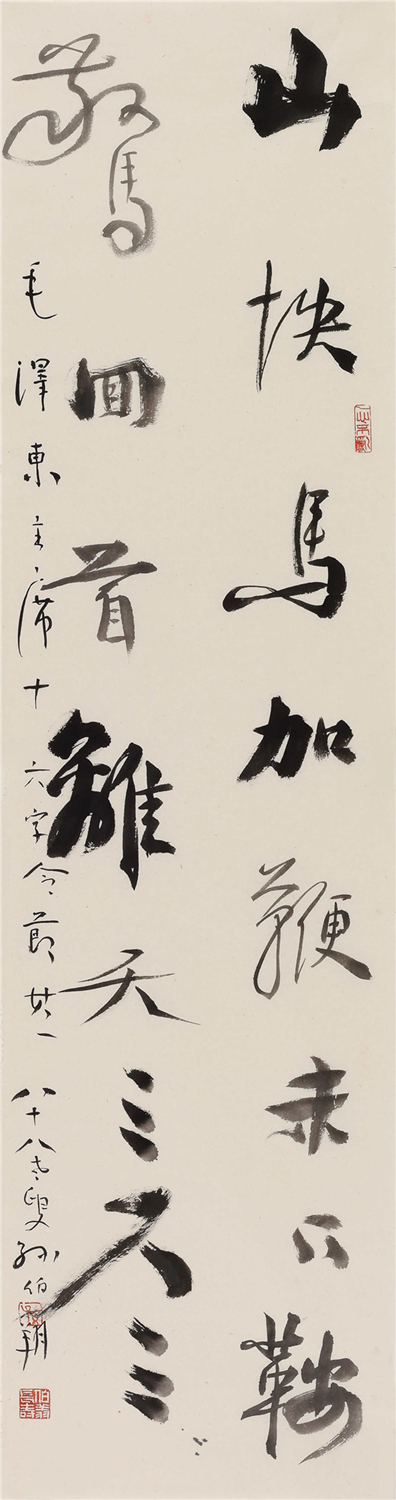 山快馬加鞭未下鞍
驚回首離天三尺三
毛澤東主席十六字令節其一 八十八老叟孫伯翔